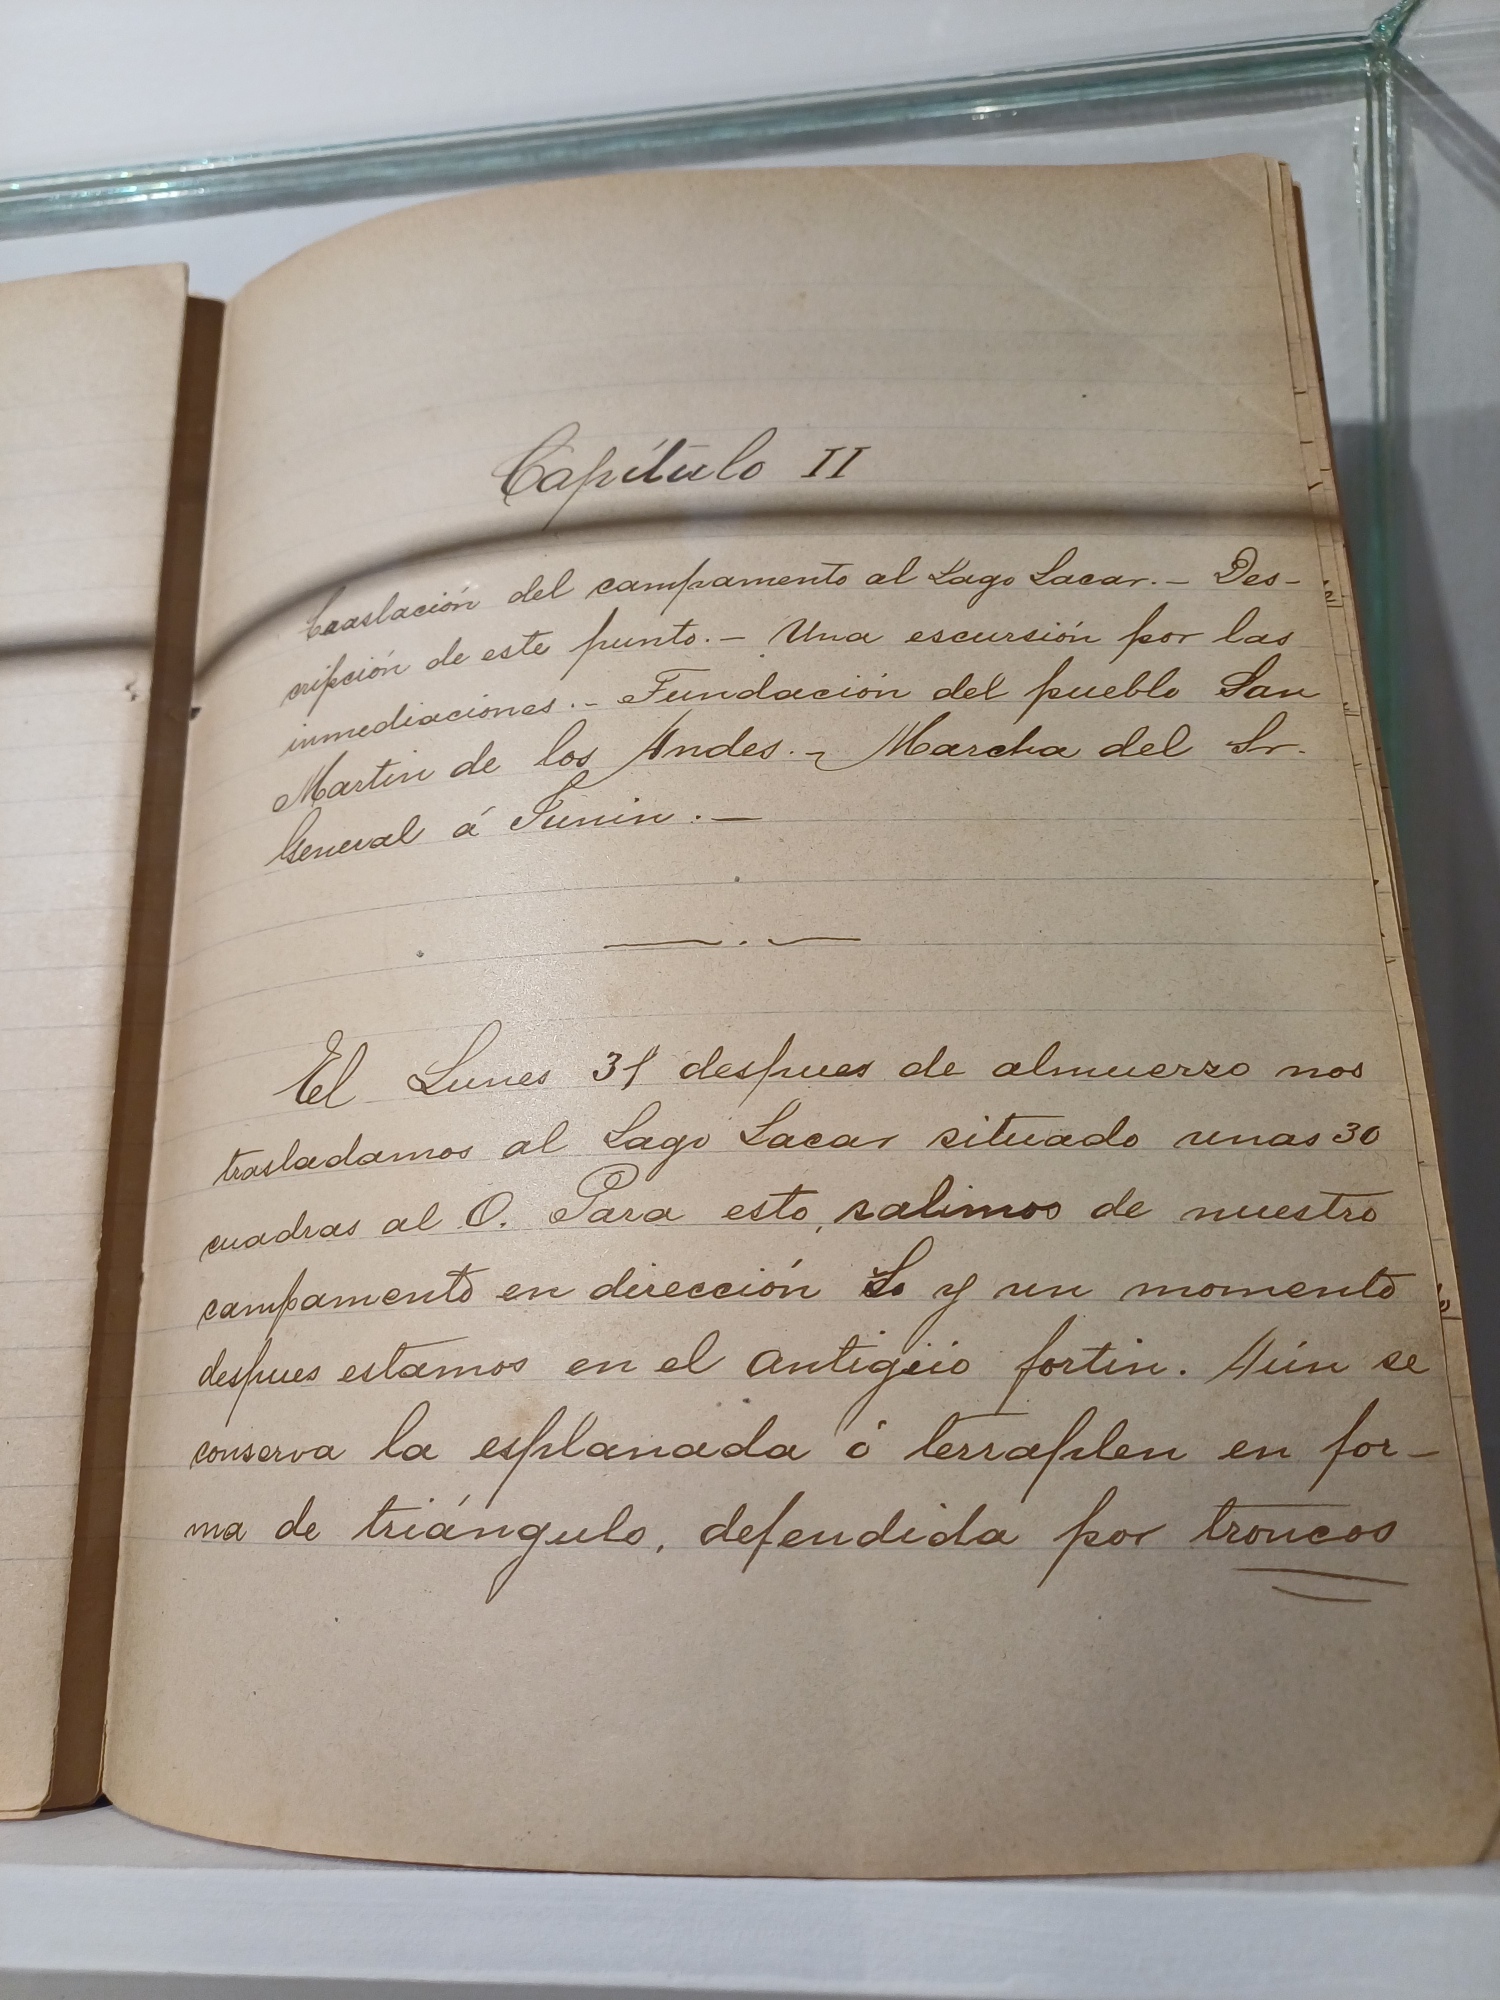 Capítulo II
Traslación del campamento al Lago Lacar. — Des-
cripción de este punto. — Una escursión por las
inmediaciones. — Fundación del pueblo San
Martin de los Andes. — Marcha del Sr.
General á Junin. —
El Lunes 31 despues de almuerzo nos
trasladamos al Lago Lacar situado unas 30
cuadras al O. Para esto, salimos de nuestro
campamento en dirección S. y un momento
despues estamos en el antigüo fortin. Aún se
conserva la esplanada ó terraplen en for-
ma de triángulo, defendida por troncos